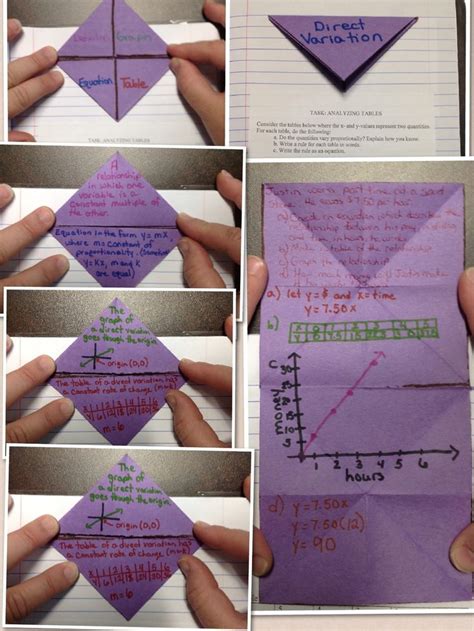 Graph
Equation Table
TASK: ANALYZING TABLES
Direct
Variation
TASK: ANALYZING TABLES
Consider the tables below where the x- and y-values represent two quantities.
For each table, do the following:
a. Do the quantities vary proportionally? Explain how you know.
b. Write a rule for each table in words.
c. Write the rule as an equation.
A
relationship
in which one
variable is a
constant multiple
of the other.
Equation in the form y=mx,
where m=constant of
proportionality. (sometimes
y=kx, m and k
are equal)
The
graph of
a direct variation
goes through the origin.
origin (0,0)
The table of a direct variation has
a constant rate of change (m=k)
x 1 2 3 4 5 6
y 6 12 18 24 30 36
m=6
The
graph of
a direct variation
goes through the origin.
origin (0,0)
The table of a direct variation has
a constant rate of change (m=k)
x 1 2 3 4 5 6
y 6 12 18 24 30 36
m=6
Justin works part time at a
store. He earns $7.50 per hour.
a) let y=$ and x=time
y=7.50x
b)
c
money
hours
1 2 3 4 5 6
d) y=7.50x
y=7.50(12)
y=90